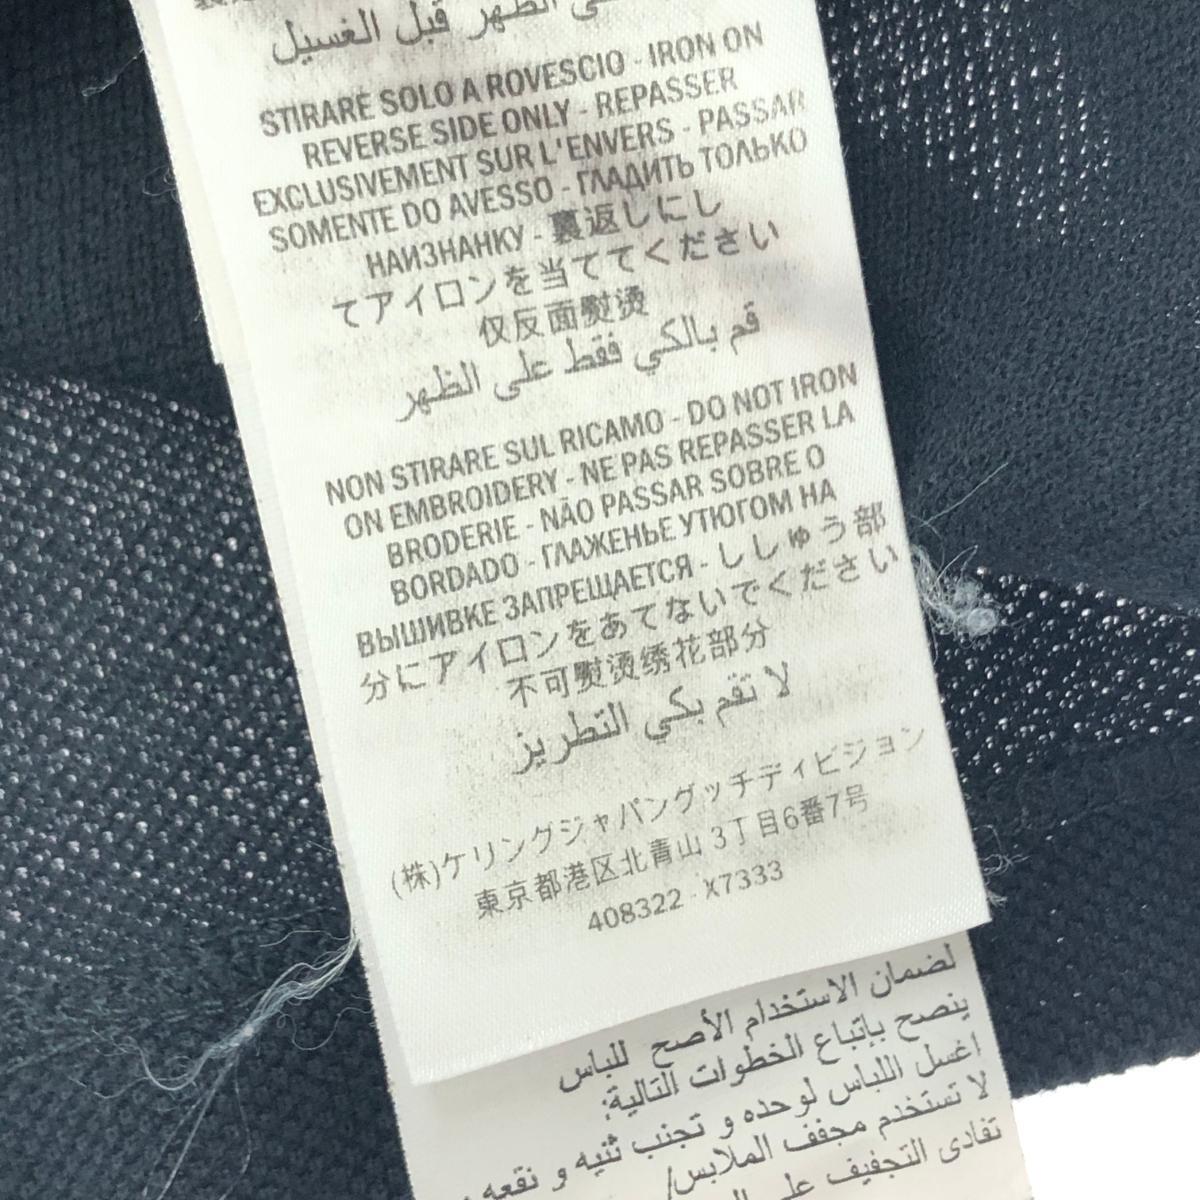 الظهر قبل الغسيل
STIRARE SOLO A ROVESCIO - IRON ON
REVERSE SIDE ONLY - REPASSER
EXCLUSIVEMENT SUR L'ENVERS - PASSAR
SOMENTE DO AVESSO - ГЛАДИТЬ ТОЛЬКО
НАИЗНАНКУ - 裏返しにし
てアイロンを当ててください
仅反面熨烫
قم بالكي فقط على الظهر
NON STIRARE SUL RICAMO - DO NOT IRON
ON EMBROIDERY - NE PAS REPASSER LA
BRODERIE - NÃO PASSAR SOBRE O
BORDADO - ГЛАЖЕНЬЕ УТЮГОМ НА
ВЫШИВКЕ ЗАПРЕЩАЕТСЯ - ししゅう部
分にアイロンをあてないでください
不可熨烫绣花部分
لا تقم بكي التطريز
(株)ケリングジャパングッチディビジョン
東京都港区北青山 3丁目6番7号
408322 - X7333
لضمان الاستخدام الأصح للباس
ينصح بإتباع الخطوات التالية:
اغسل اللباس لوحده و تجنب ثنيه و نقعه
لا تستخدم مجفف الملابس/
تفادى التجفيف على